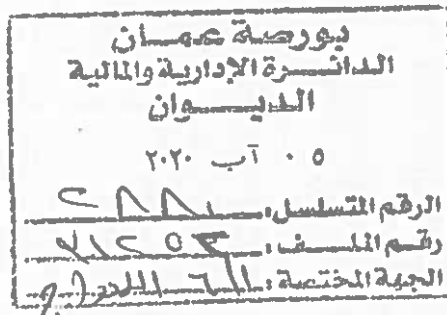 بورصة عمان
الدائرة الإدارية والمالية
الديوان
٠٥ آب ٢٠٢٠
الرقم المتسلسل: ٢٨٨١
رقم الملف:
الجهة المختصة: